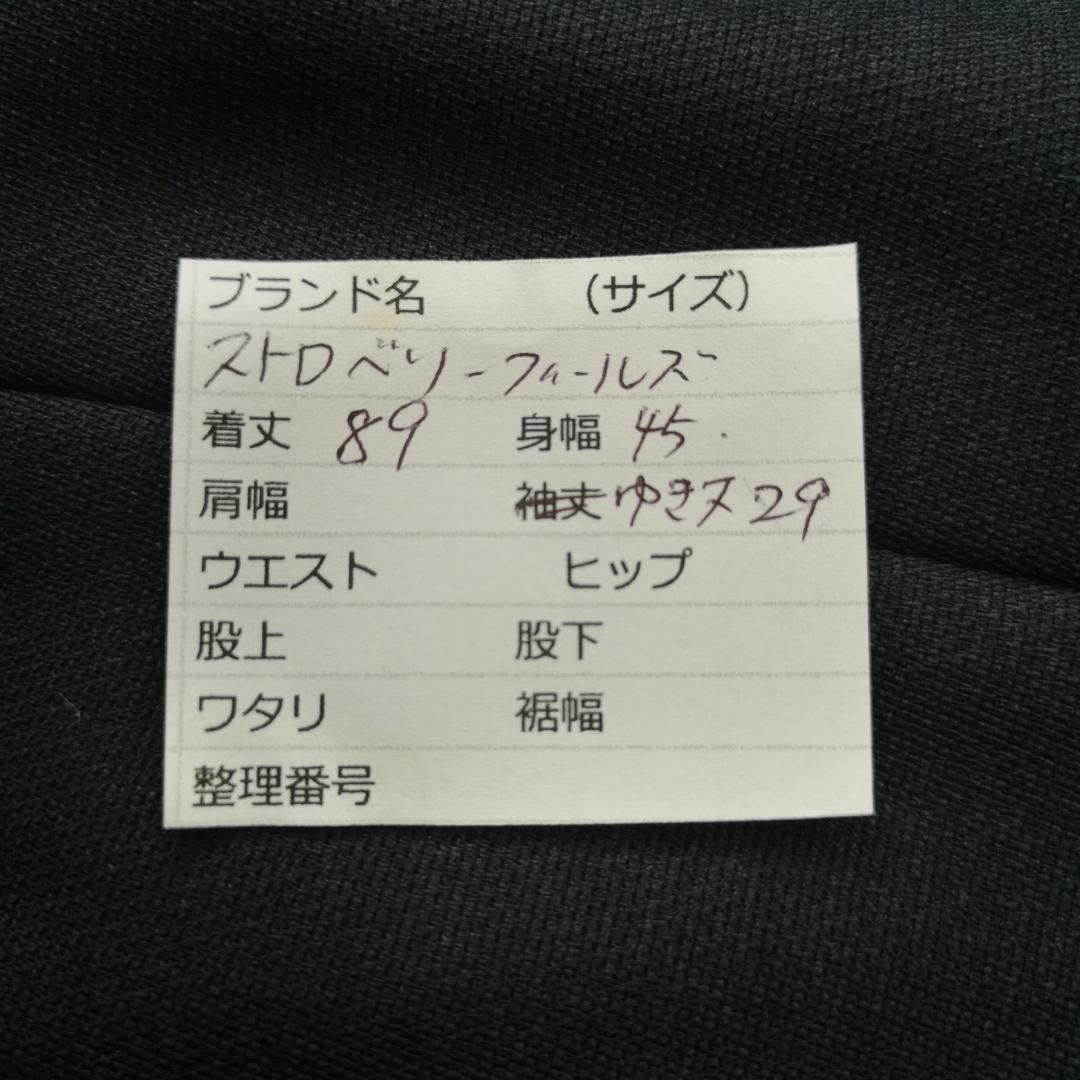 ブランド名 （サイズ）
ストロベリーフィールズ
着丈 89 身幅 45
肩幅 袖丈 ゆき丈 29
ウエスト ヒップ
股上 股下
ワタリ 裾幅
整理番号